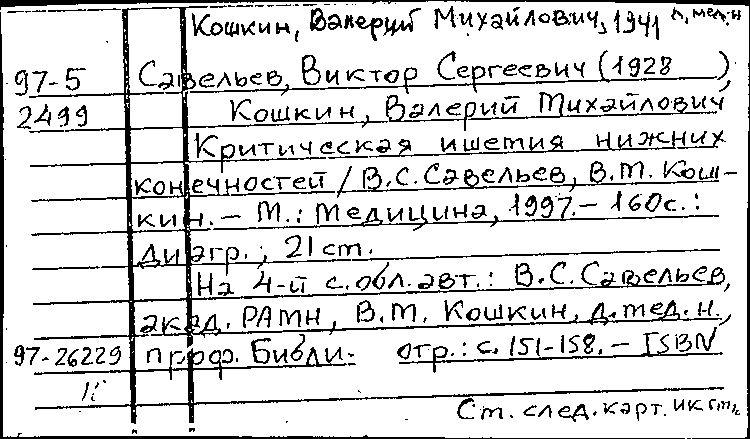 Кошкин, Валерий Михайлович, 1941 д.мед.н
97-5 Савельев, Виктор Сергеевич (1928 ),
2499 Кошкин, Валерий Михайлович
Критическая ишемия нижних
конечностей / В.С. Савельев, В.М. Кош-
кин. – М.: Медицина, 1997. – 160с.:
диагр.; 21 см.
На 4-й с. обл. авт.: В.С. Савельев,
акад. РАМН, В.М. Кошкин, д.мед.н.,
97-26229 проф. Библи- огр.: с. 151-158. – ISBN
См. след. карт.